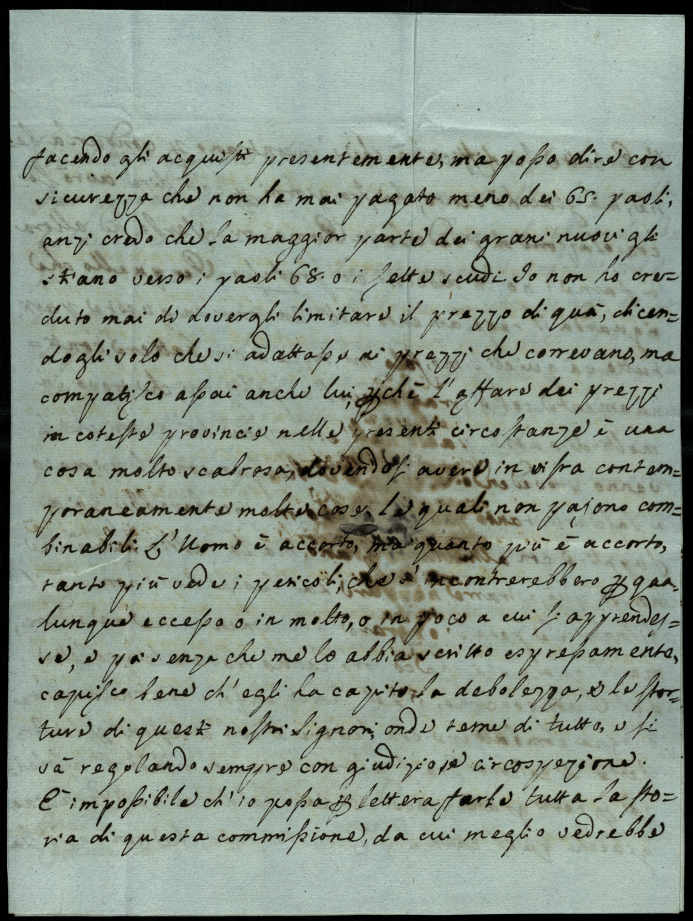 facendo gli acquisti presentemente, ma posso dire con
sicurezza che non ha mai pagato meno dei 65. paoli,
anzi credo che la maggior parte dei grani nuovi gli
stiano verso i paoli 68. o i sette scudi. Io non ho cre=
duto mai di dovergli limitare il prezzo di quà, dicen=
dogli solo che si adattasse ai prezzi che correvano, ma
compatisco assai anche lui, pchè l'affare dei prezzi
in coteste provincie nelle presenti circostanze è una
cosa molto scabrosa, dovendosi avere in vista contem=
poraneamente molte cose, le quali non pajono com=
binabili. L'Uomo è accorto, ma quanto più è accorto,
tanto più vede i pericoli, che s'incontrerebbero p qua=
lunque eccesso o in molto, o in poco a cui si apprendes=
se, e già senza che me lo abbia scritto espressamente,
capisco bene ch'egli ha capito la debolezza, e le stor=
ture di questi nostri Signori, onde teme di tutto, e si
và regolando sempre con giudizio, e circospezione.
È impossibile ch'io possa p lettera farle tutta la sto=
ria di questa commissione, da cui meglio vedrebbe